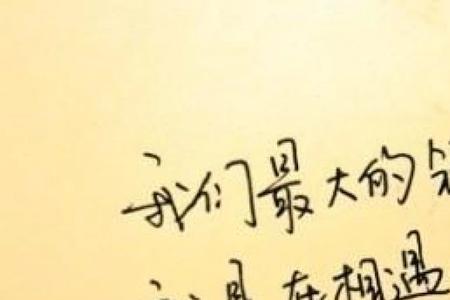 我们最大的
是在相遇